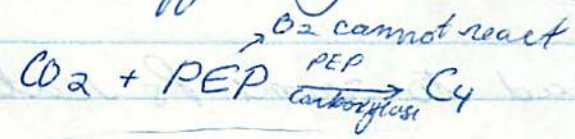 O2 cannot react
CO2 + PEP PEP carboxylase C4